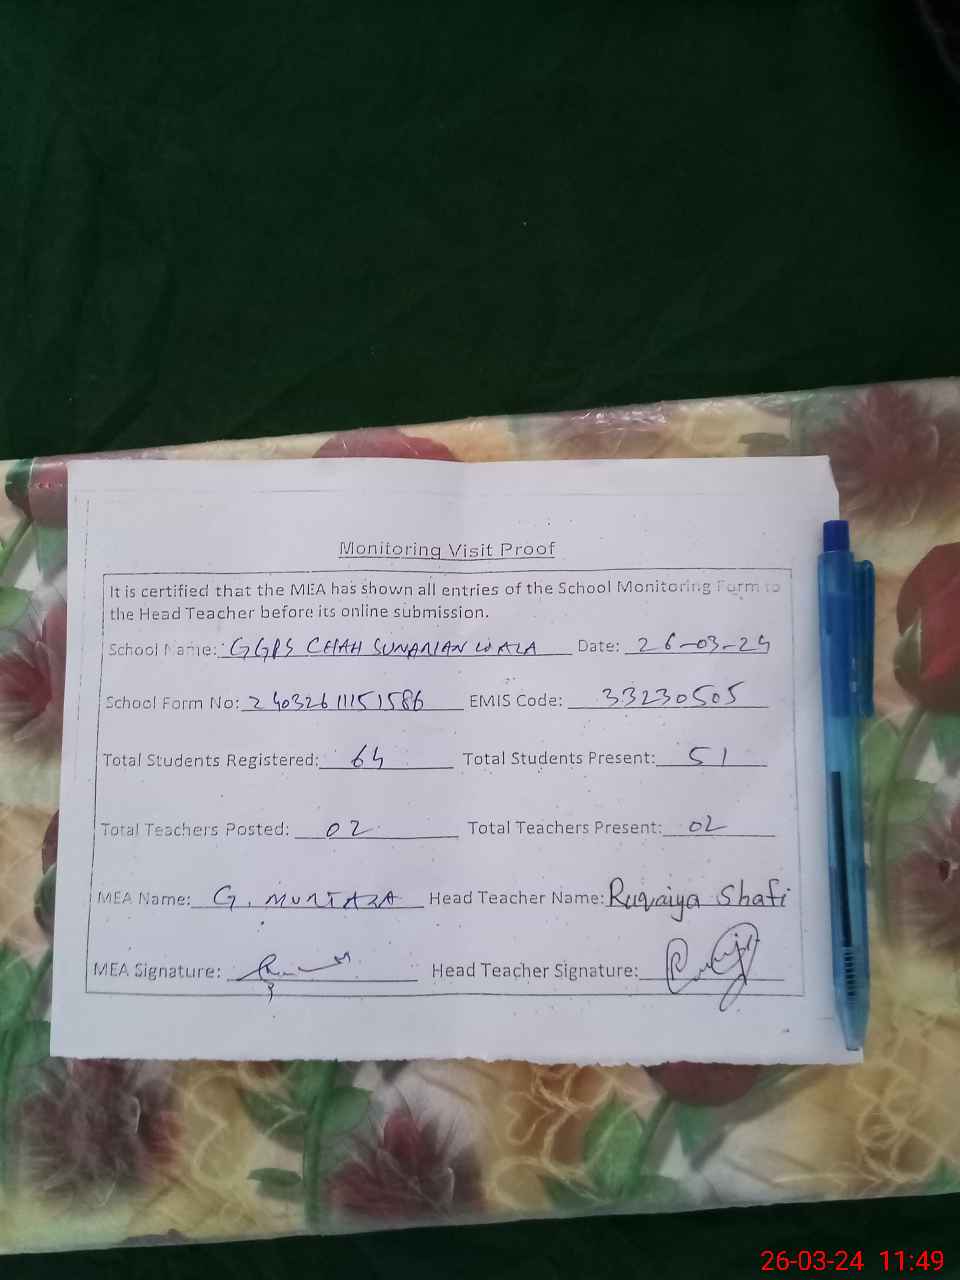 Monitoring Visit Proof
It is certified that the MEA has shown all entries of the School Monitoring Form to
the Head Teacher before its online submission.
School Name: GGPS CHAH SUNARIAN WALA Date: 26-03-24
School Form No: 2403261115 1586 EMIS Code: 33230505
Total Students Registered: 64 Total Students Present: 51
Total Teachers Posted: 02 Total Teachers Present: 02
MEA Name: G. MURTAZA Head Teacher Name: Ruqaiya Shafi
MEA Signature: Head Teacher Signature:
26-03-24 11:49